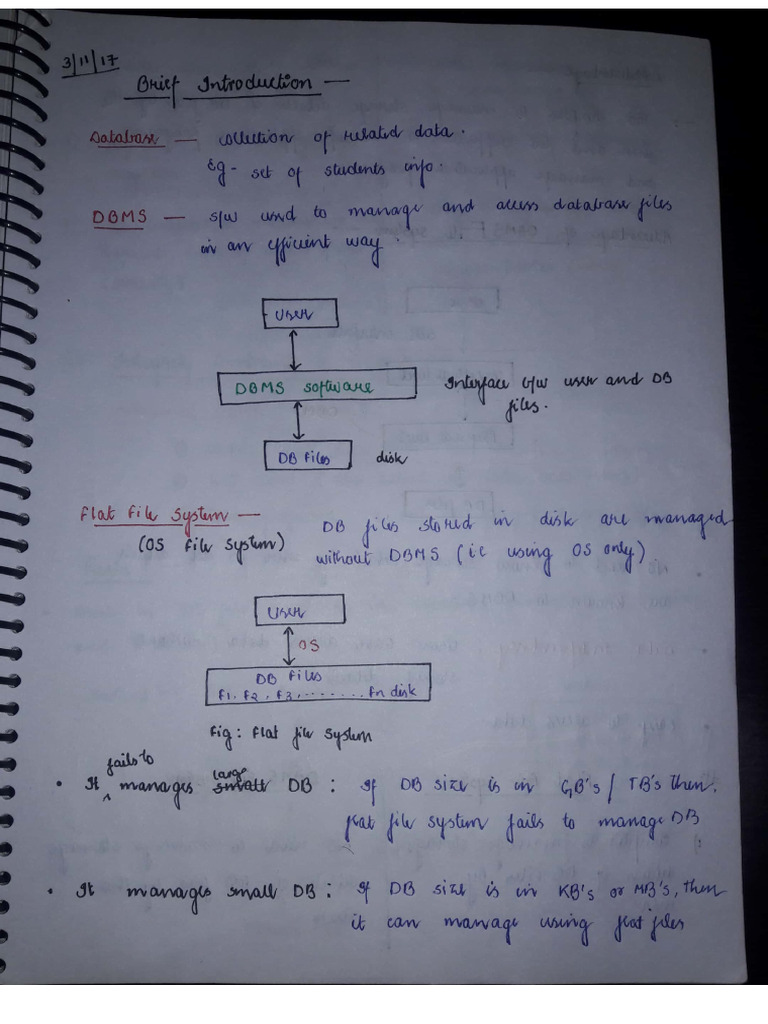 3/11/17
Brief Introduction —
Database — collection of related data.
Eg - set of students info.
DBMS — s/w used to manage and access database files
in an efficient way.
User
DBMS Software
Interface b/w user and DB
files.
DB Files
disk
Flat File System —
(OS File System)
DB files stored in disk are managed
without DBMS (ie using OS only)
User
OS
DB Files
F1, F2, F3, ........ Fn disk
Fig: Flat file System
fails to
large
• It manages small DB : If DB size is in GB's / TB's then.
flat file system fails to manage DB
• It manages small DB : If DB size is in KB's or MB's, then
it can manage using flat files